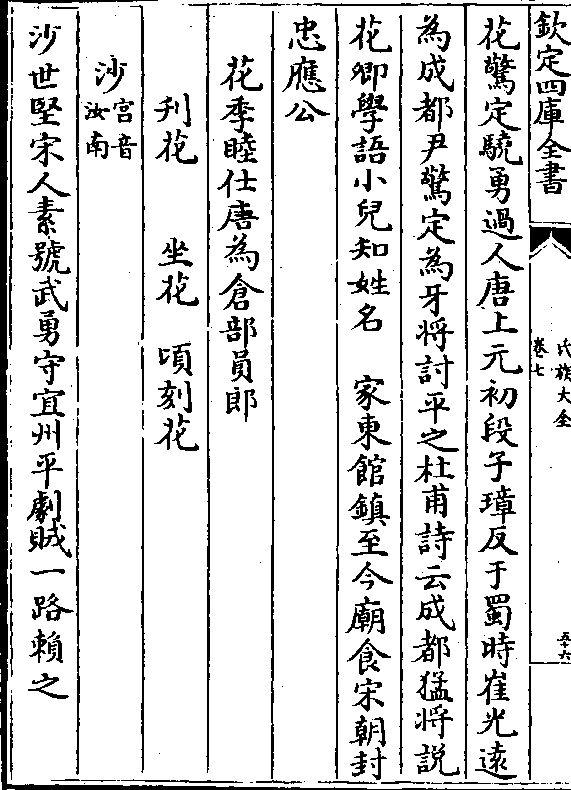 欽定四庫全書
氏族大全
卷七
五十六
花驚定驍勇過人唐上元初段子璋反于蜀時崔光遠
為成都尹驚定為牙將討平之杜甫詩云成都猛將說
花卿學語小兒知姓名　家東館鎮至今廟食宋朝封
忠應公
花季睦仕唐為倉部員郎
刋花　坐花　頃刻花
沙宮音汝南
沙世堅宋人素號武勇守宜州平劇賊一路賴之